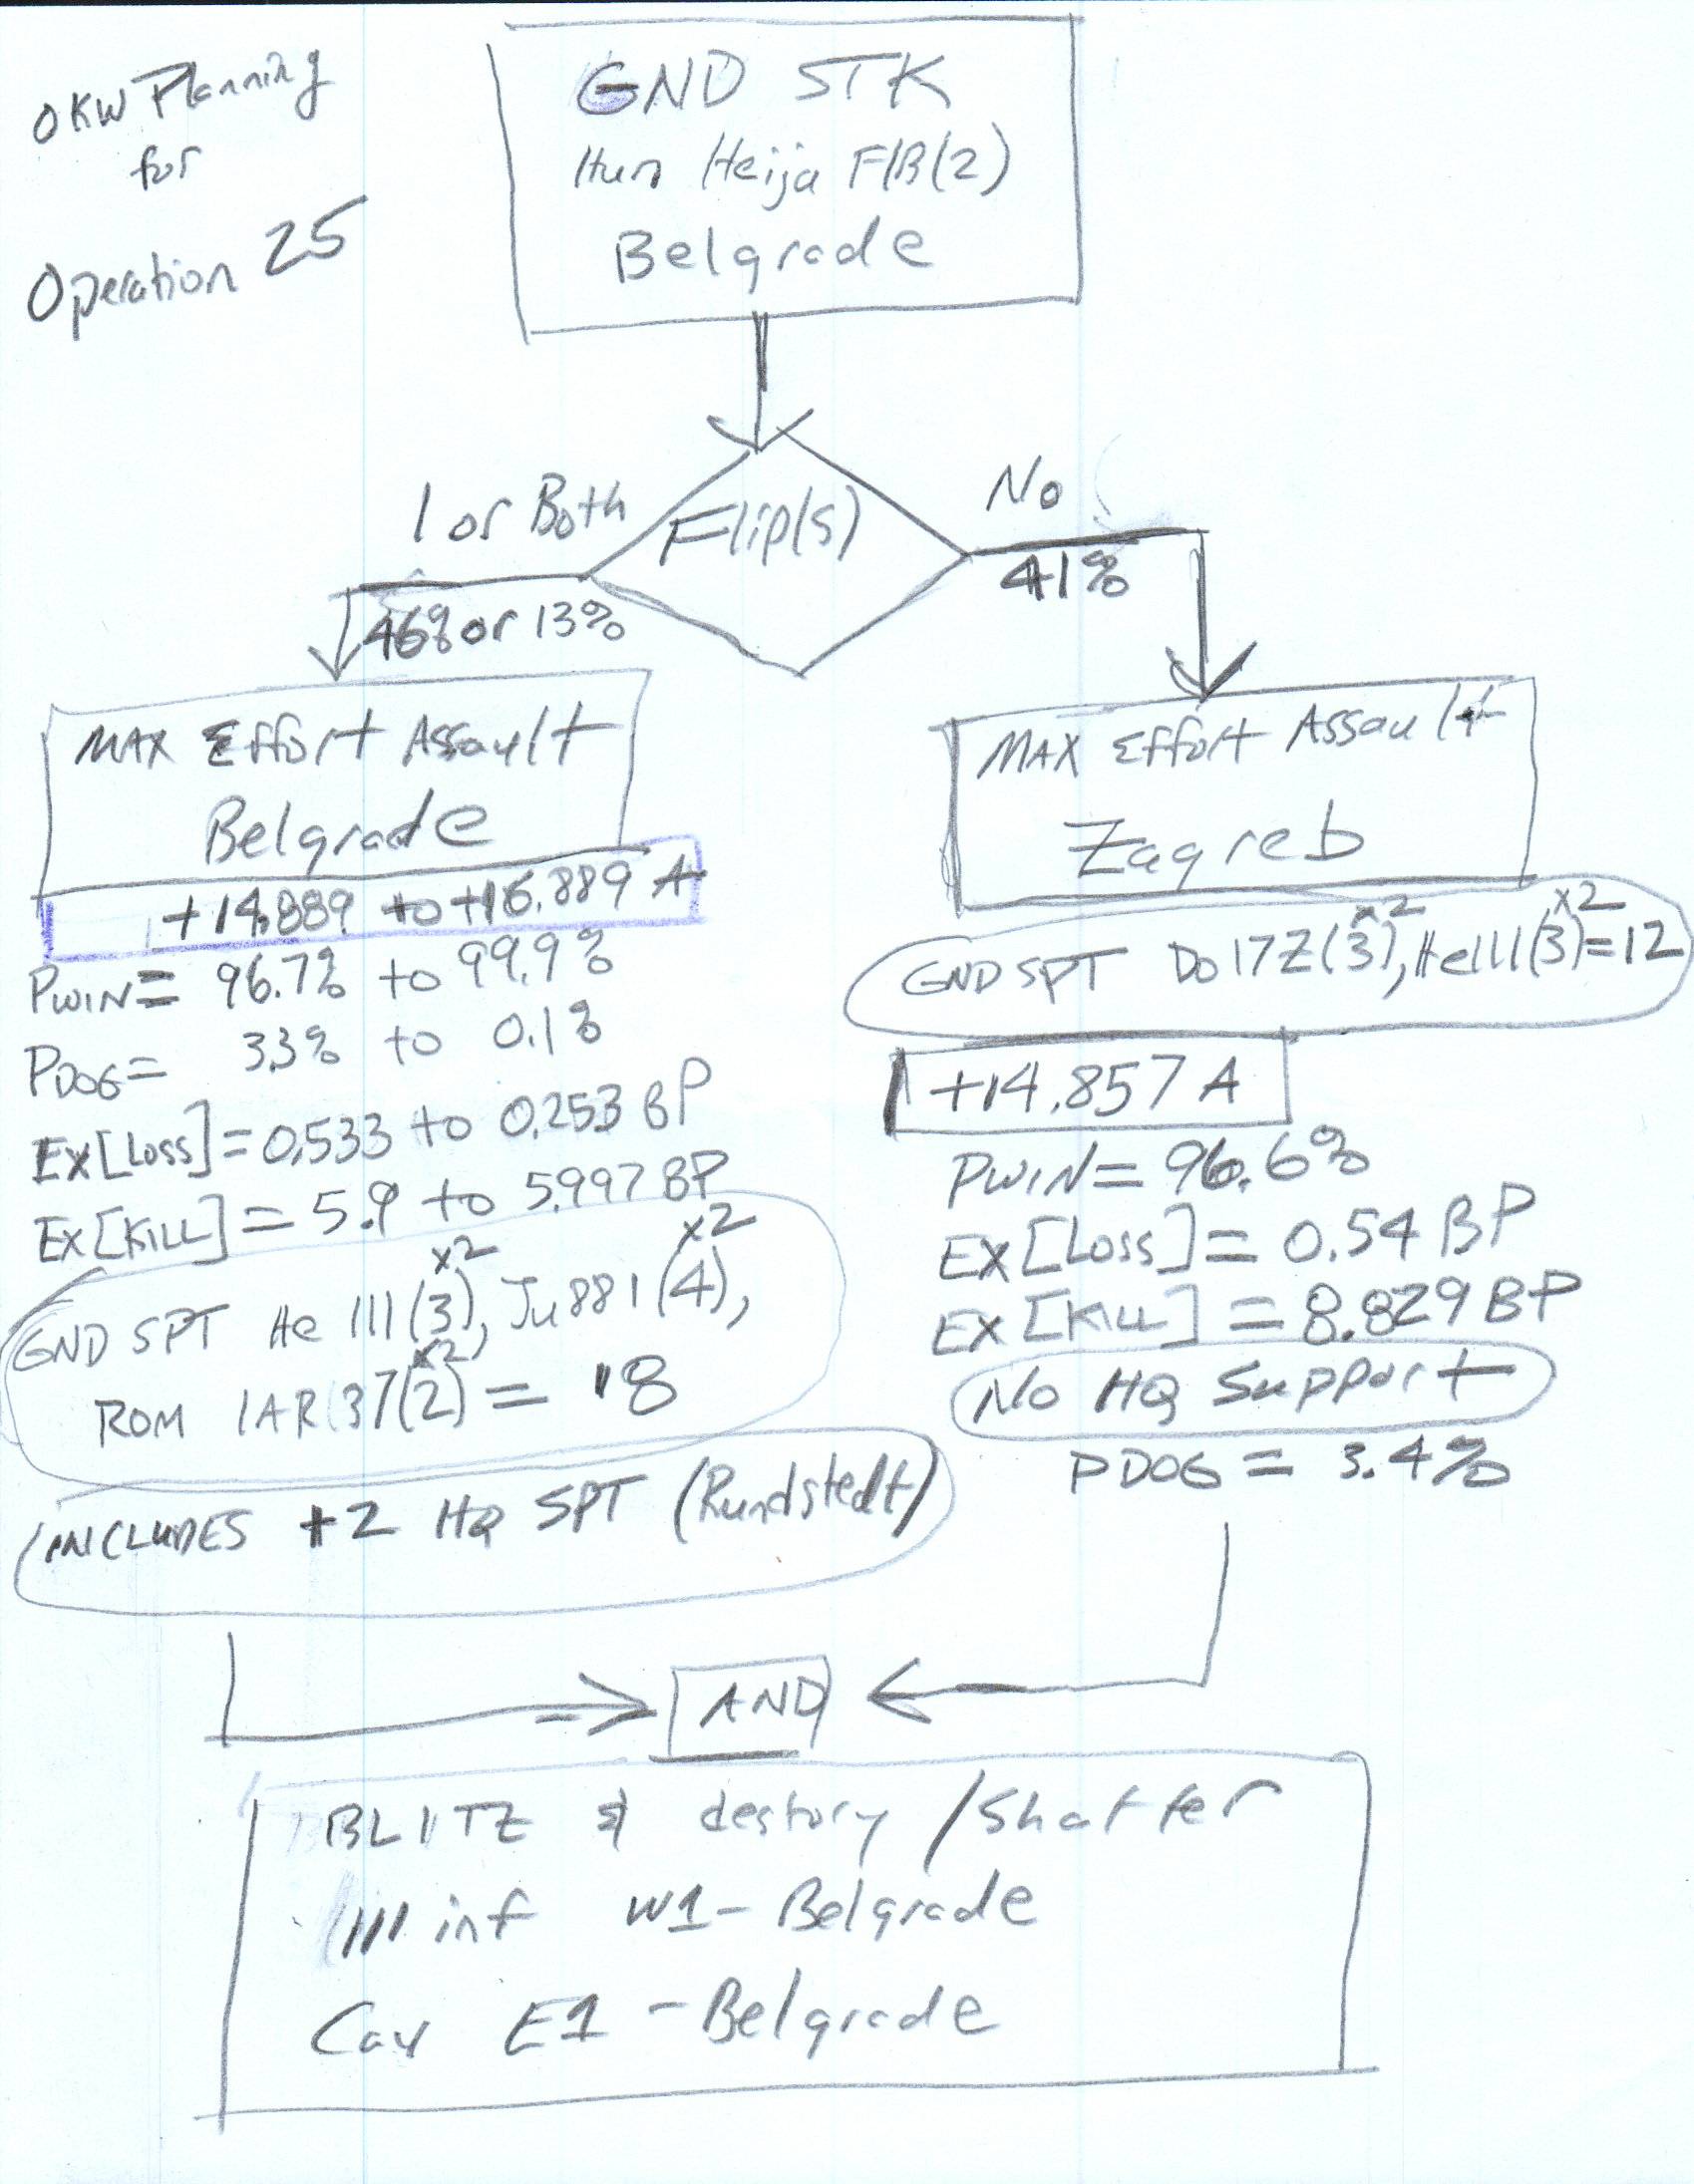 OKW Planning
for
Operation 25
GND STK
Hun Heija FB(2)
Belgrade
Flip(s)
1 or Both
46% or 13%
No
41%
MAX Effort Assault
Belgrade
+14.889 to +16.889 A
PWIN = 96.7% to 99.9%
PDOG = 3.3% to 0.1%
EX[Loss] = 0.533 to 0.253 BP
EX[KILL] = 5.9 to 5.997 BP
GND SPT He 111(3)x2, Ju881(4)x2,
ROM IAR 37(2)x2 = 18
INCLUDES +2 HQ SPT (Rundstedt)
MAX Effort Assault
Zagreb
GND SPT Do17Z(3)x2, He111(3)x2=12
+14.857 A
PWIN = 96.6%
EX[Loss] = 0.54 BP
EX[KILL] = 8.829 BP
No HQ Support
PDOG = 3.4%
AND
BLITZ & destory/shatter
III inf W1-Belgrade
Cav E1-Belgrade